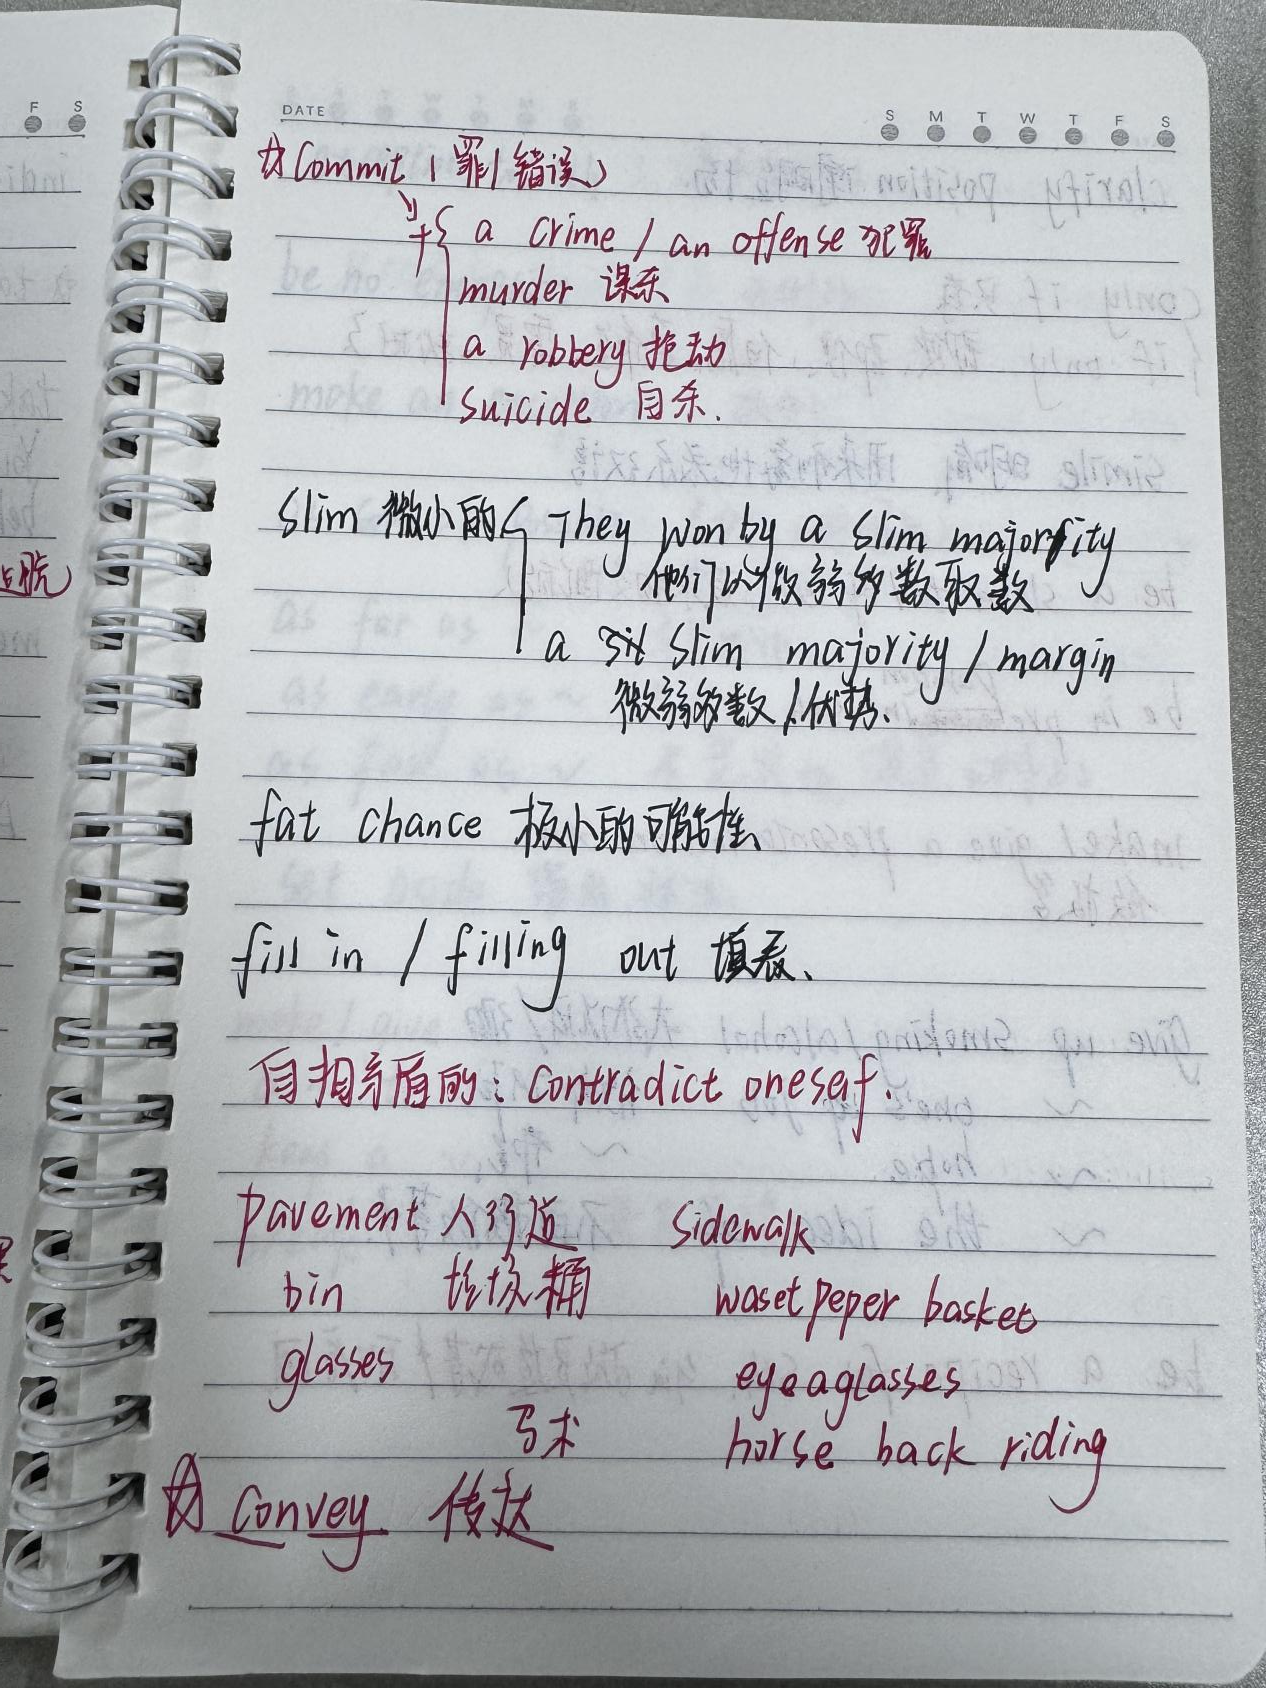 F S
DATE
S M T W T F S
☆ Commit (罪/错误)
+{ a crime / an offense 犯罪
murder 谋杀
a robbery 抢劫
suicide 自杀.
slim 微小的{ They won by a slim majority
他们以微弱多数取数
a slim majority / margin
微弱多数/优势.
fat chance 极小的可能性.
fill in / filling out 填表.
自相矛盾的: contradict onesaf.
pavement 人行道 sidewalk
bin 垃圾桶 waset peper basket
glasses eyeaglasses
马术 horse back riding
☆ convey 传达